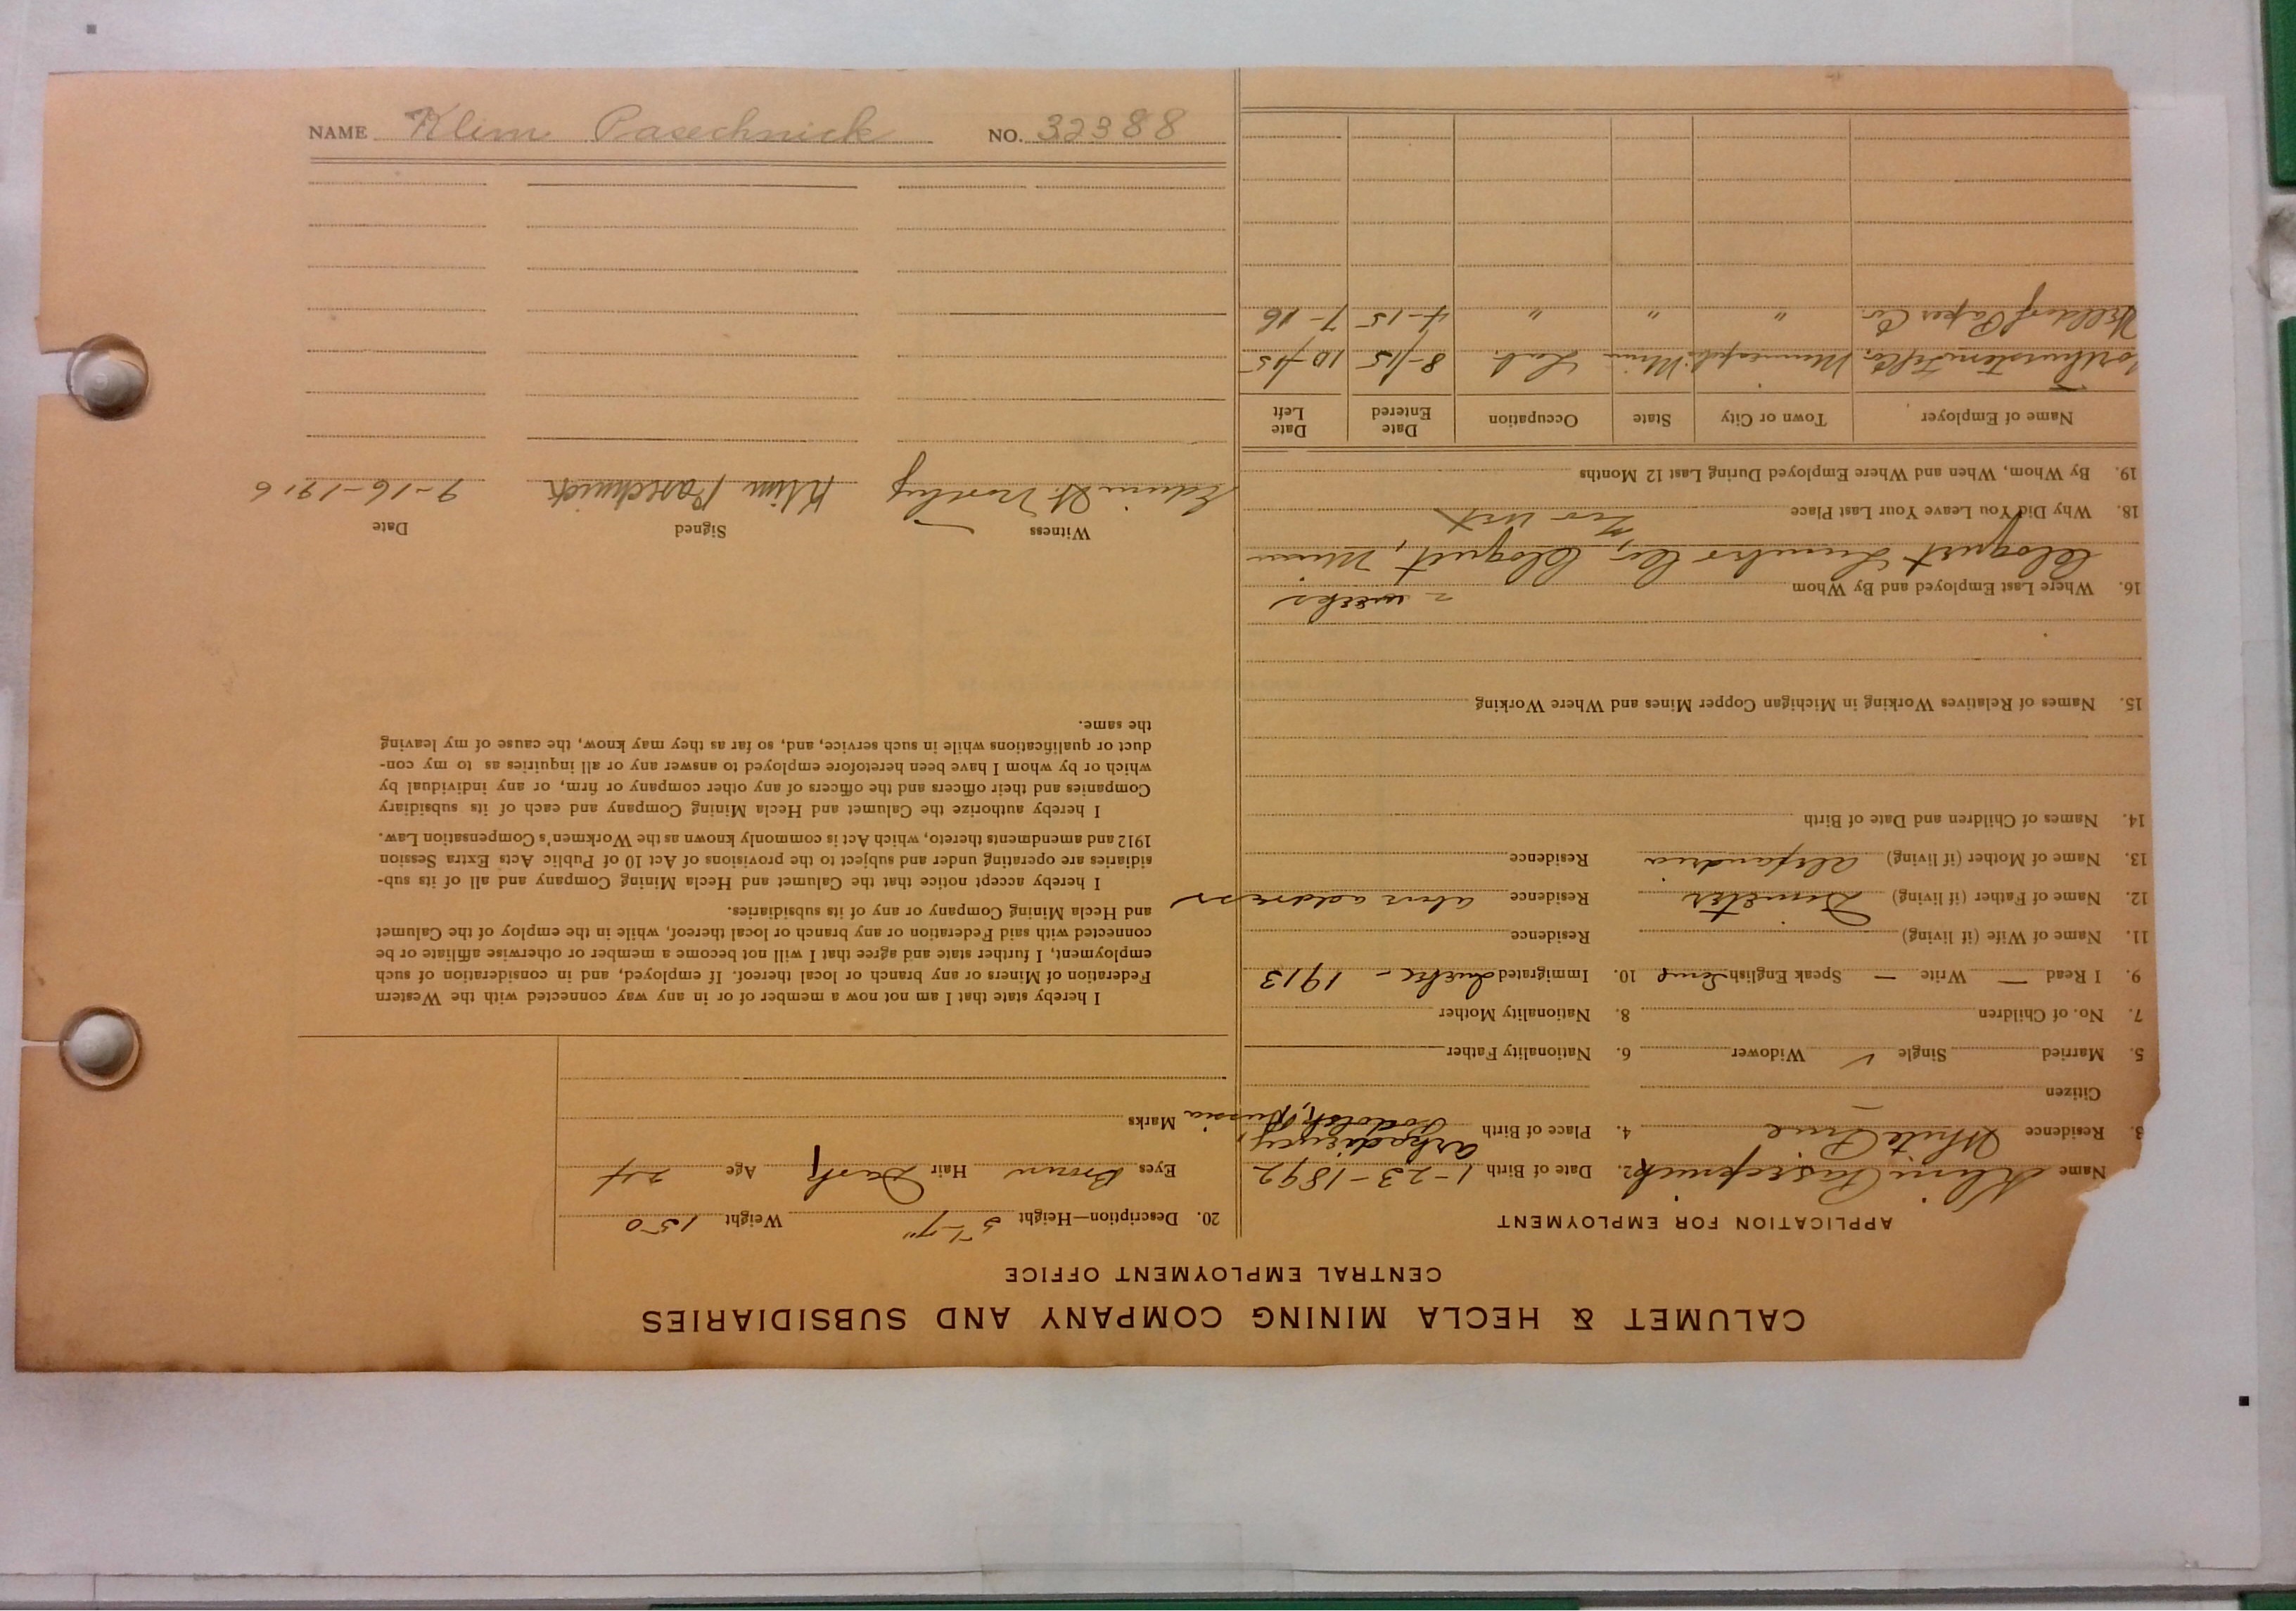 CALUMET & HECLA MINING COMPANY AND SUBSIDIARIES
CENTRAL EMPLOYMENT OFFICE
APPLICATION FOR EMPLOYMENT
Name Klim Pasecpnick 2. Date of Birth 1-23-1892
3. Residence White Pine 4. Place of Birth
Podolsk, Russia
Citizen —
5. Married Single ✓ Widower 6. Nationality Father
7. No. of Children 8. Nationality Mother
9. I Read — Write — Speak English Some 10. Immigrated Quebec - 1913
11. Name of Wife (if living) Residence
12. Name of Father (if living) Dimeter Residence above address
13. Name of Mother (if living) Alexandria Residence
14. Names of Children and Date of Birth
15. Names of Relatives Working in Michigan Copper Mines and Where Working
16. Where Last Employed and By Whom 2 weeks
Cloquet Lumber Co, Cloquet, Minn
18. Why Did You Leave Your Last Place Too wet
19. By Whom, When and Where Employed During Last 12 Months
Name of Employer Town or City State Occupation Date Entered Date Left
Minneapolis Minn Lab. 8-/15 10-/15
Paper Co. " " " 4-15 7-16
20. Description—Height 5-7" Weight 150
Eyes Brown Hair Dark Age 24
Marks
I hereby state that I am not now a member of or in any way connected with the Western
Federation of Miners or any branch or local thereof. If employed, and in consideration of such
employment, I further state and agree that I will not become a member or otherwise affiliate or be
connected with said Federation or any branch or local thereof, while in the employ of the Calumet
and Hecla Mining Company or any of its subsidiaries.
I hereby accept notice that the Calumet and Hecla Mining Company and all of its sub-
sidiaries are operating under and subject to the provisions of Act 10 of Public Acts Extra Session
1912 and amendments thereto, which Act is commonly known as the Workmen's Compensation Law.
I hereby authorize the Calumet and Hecla Mining Company and each of its subsidiary
Companies and their officers and the officers of any other company or firm, or any individual by
which or by whom I have been heretofore employed to answer any or all inquiries as to my con-
duct or qualifications while in such service, and, so far as they may know, the cause of my leaving
the same.
Witness Signed Date
Edwin St. Klim Pasechnick 9-16-1916
NAME Klim Pasechnick NO. 32388